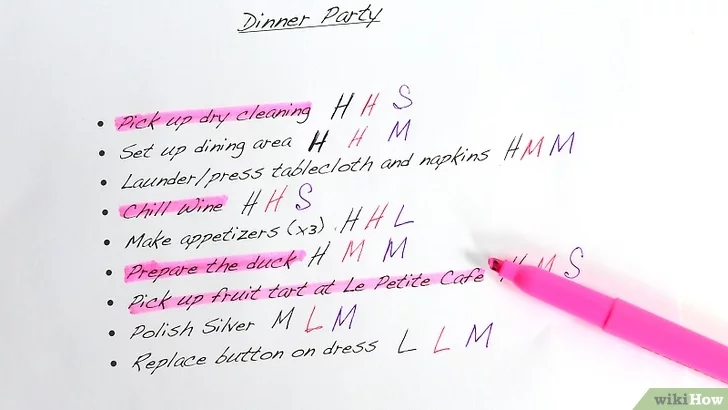 Dinner Party
• Pick up dry cleaning H H S
• Set up dining area H H M
• Launder/press tablecloth and napkins H M M
• Chill Wine H H S
• Make appetizers (x3). H H L
• Prepare the duck H M M
• Pick up fruit tart at Le Petite Cafe H M S
• Polish Silver M L M
• Replace button on dress L L M
wikiHow